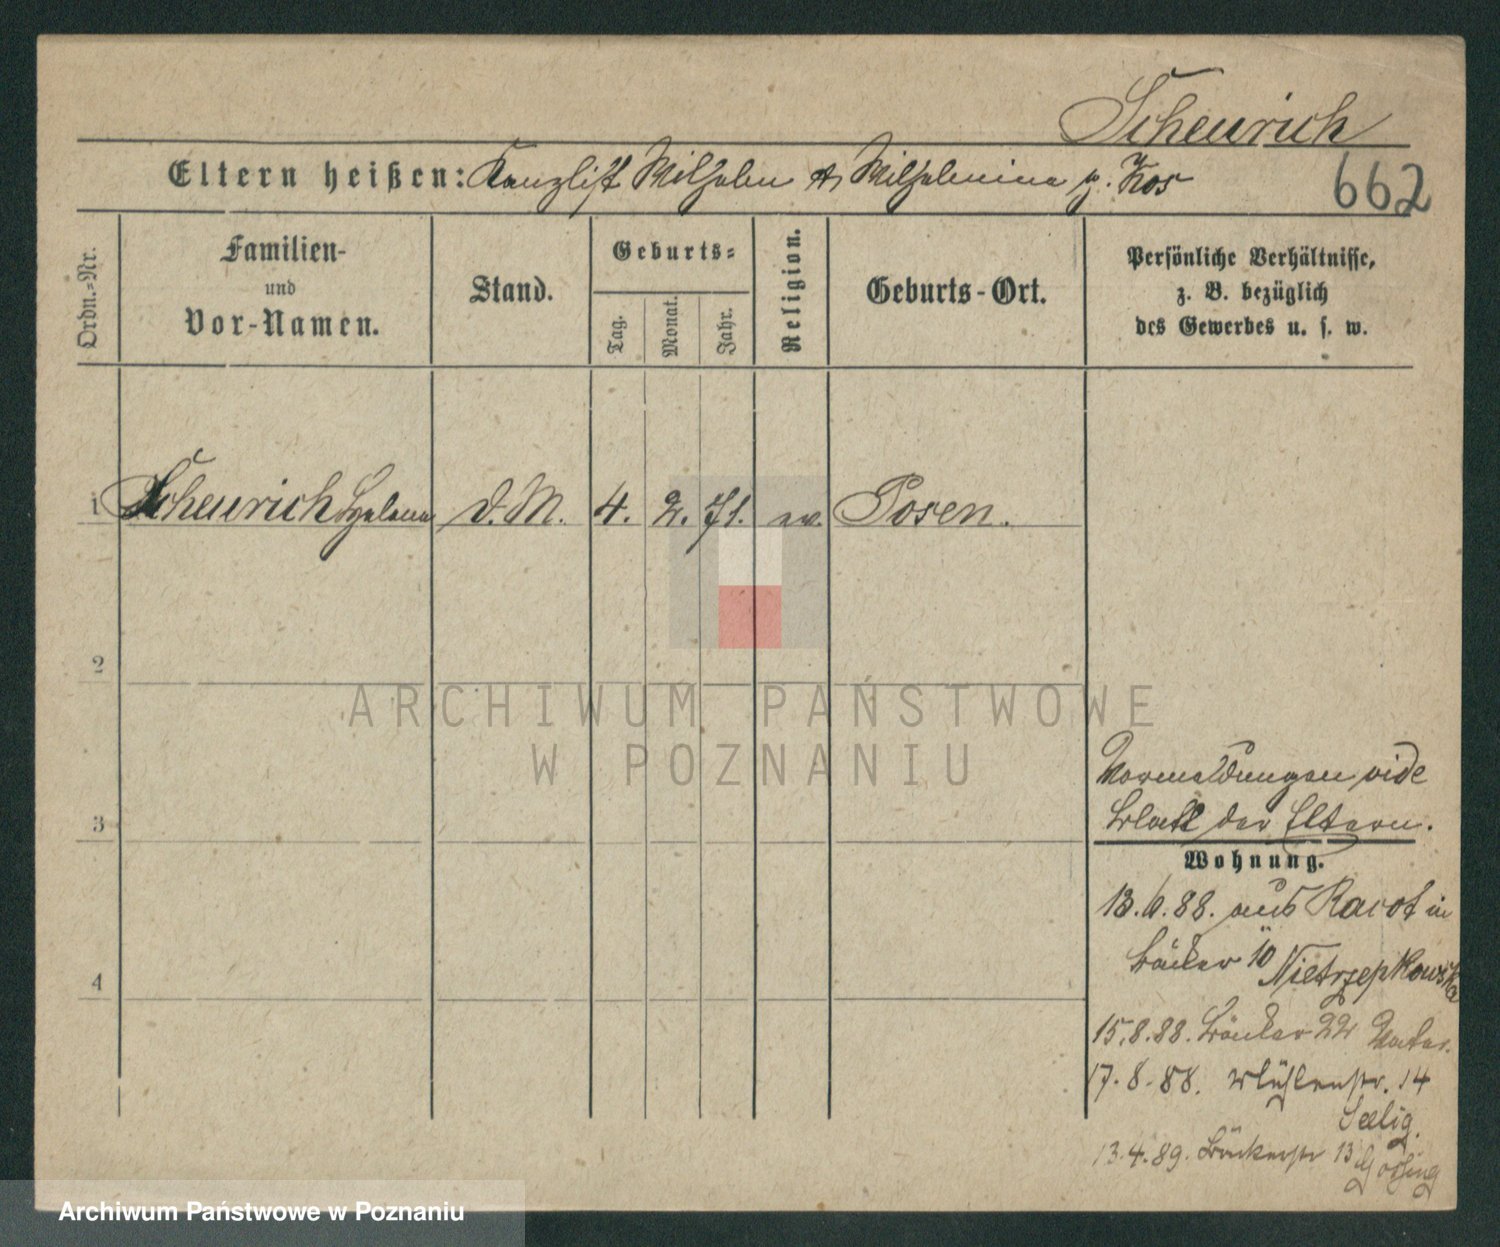 Scheurich
Eltern heißen: Kanzlist Wilhelm & Wilhelmina g. Kos
662
Ordn.-Nr.
Familien-
und
Vor-Namen.
Stand.
Geburts-
Tag.
Monat.
Jahr.
Religion.
Geburts-Ort.
Persönliche Verhältnisse,
z. B. bezüglich
des Gewerbes u. s. w.
1 Scheurich Helena d. M. 4. 2. 71. ev. Posen.
2
3
4
ARCHIWUM PAŃSTWOWE
W POZNANIU
Vormeldungen vide
Blatt der Eltern.
Wohnung.
13.6.88. aus Racot in
Bäcker 10 Nietrzepkowska
15.8.88. Bäcker 22 Vater.
17.8.88. Mühlenstr. 14
Seelig.
13.4.89. Bäckerstr 13
Archiwum Państwowe w Poznaniu